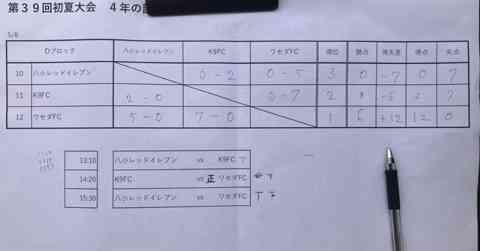 第39回初夏大会 4年の
5/6
Dブロック ハ小レッドイレブン K9FC ワセダFC 順位 勝点 得失差 得点 失点
10 ハ小レッドイレブン 0-2 0-5 3 0 -7 0 7
11 K9FC 2-0 0-7 2 3 -5 2 7
12 ワセダFC 5-0 7-0 1 6 +12 12 0
13:10 ハ小レッドイレブン vs K9FC T
14:20 K9FC vs ワセダFC
15:30 ハ小レッドイレブン vs ワセダFC